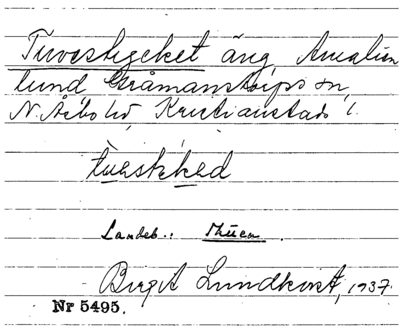 Tuvestycket äng Amalien
lund Gråmanstorps sn,
N. Åsbo hd, Kristianstads l.
Landsb.:
Birgit Lundkvist, 1937
Nr 5495.